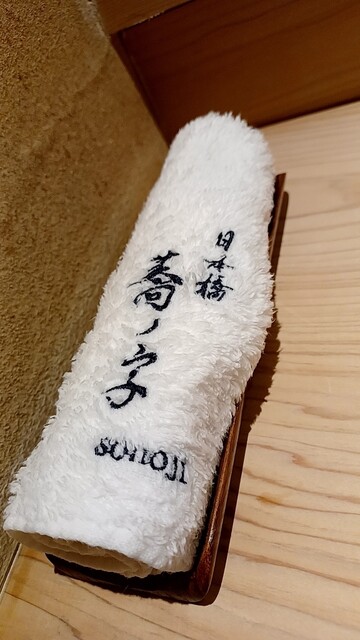 日本橋
蕎ノ字
SONOJI